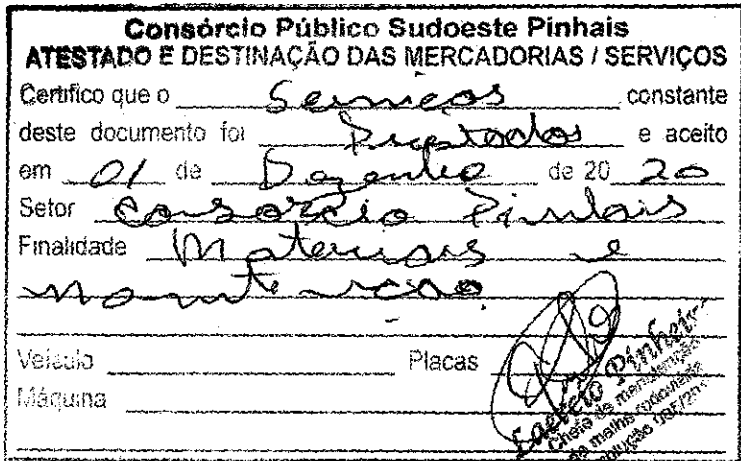 Consórcio Público Sudoeste Pinhais
ATESTADO E DESTINAÇÃO DAS MERCADORIAS / SERVIÇOS
Certifico que o Serviços constante
deste documento foi Prestados e aceito
em 01 de Dezembro de 2020
Setor Consorcio Pinhais
Finalidade Materiais e
manutenção
Veículo Placas
Máquina
Pinheiro
Chefe de manutenção
de malha rodoviária